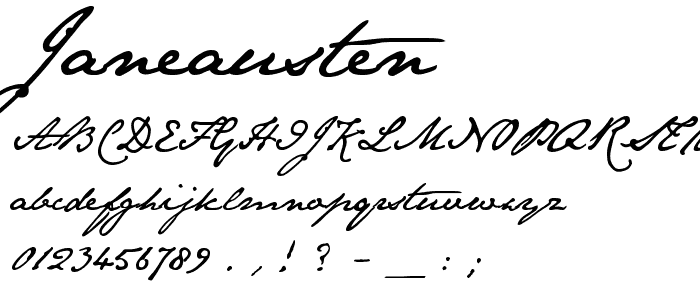 Janeausten
ABCDEFGHIJKLMNOPQRST
abcdefghijklmnopqrstuvwxyz
0123456789 . , ! ? - _ : ;